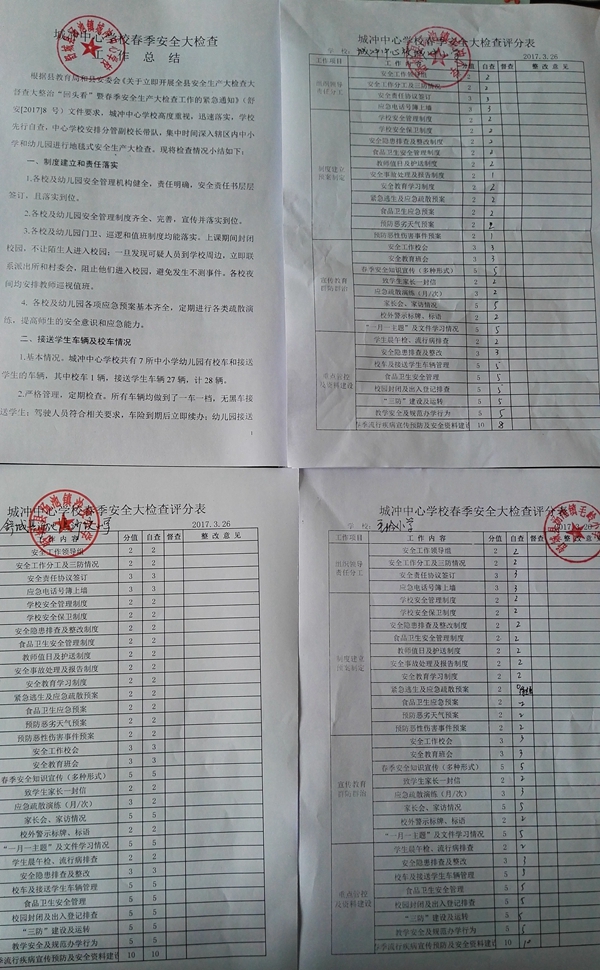 城冲中心学校春季安全大检查
工作总结
根据县教育局和县安委会《关于立即开展全县安全生产大检查
督查大整治“回头看”暨春季安全生产大检查工作的紧急通知》（舒
安[2017]8 号）文件要求，城冲中心学校高度重视，迅速落实，学校
先行自查，中心学校安排分管副校长带队，集中时间深入辖区内中小
学和幼儿园进行地毯式安全生产大检查。现将检查情况小结如下：
一、制度建立和责任落实
1.各校及幼儿园安全管理机构健全，责任明确，安全责任书层层
签订，且落实到位。
2.各校及幼儿园安全管理制度齐全、完善，宣传并落实到位。
3.各校及幼儿园门卫、巡逻和值班制度均能落实。上课期间封闭
校园，不让陌生人进入校园；一旦发现可疑人员到学校周边，立即联
系派出所和村委会，阻止他们进入校园，避免发生不测事件。各校夜
间均安排教师巡视值班。
4. 各校及幼儿园各项应急预案基本齐全，定期进行各类疏散演
练，提高师生的安全意识和应急能力。
二、接送学生车辆及校车情况
1.基本情况。城冲中心学校共有 7 所中小学幼儿园有校车和接送
学生的车辆，其中校车 1 辆，接送学生车辆 27 辆，计 28 辆。
2.严格管理，定期检查。所有车辆均做到了一车一档，无黑车接
送学生；驾驶人员符合相关要求，车险到期后立即续办；幼儿园接送
1
城冲中心学校春季安全大检查评分表
学校：
2017.3.26
工作项目 工作内容 分值 自查 督查 整改意见
组织领导
责任分工
安全工作领导组 2 2
安全工作分工及三防情况 2 2
安全责任协议签订 3 3
应急电话号簿上墙 3 3
制度建立
预案制定
学校安全管理制度 2 2
学校安全保卫制度 2 2
安全隐患排查及整改制度 2 2
食品卫生安全管理制度 2 2
教师值日及护送制度 2 2
安全事故处理及报告制度 2 1
安全教育学习制度 2 2
紧急逃生及应急疏散预案 2 2
食品卫生应急预案 2 2
预防恶劣天气预案 2 2
预防性伤害事件预案 2 1
宣传教育
群防群治
安全工作校会 3 3
安全教育班会 3 3
春季安全知识宣传（多种形式） 5 5
致学生家长一封信 2 2
应急疏散演练（月/次） 3 2
家长会、家访情况 5 5
校外警示标牌、标语 2 2
“一月一主题”及文件学习情况 5 5
重点管控
及资料建设
学生晨午检、流行病排查 2 2
安全隐患排查及整改 3 3
校车及接送学生车辆管理 5 5
食品卫生安全管理 5 5
校园封闭及出入登记排查 5 5
“三防”建设及运转 5 5
教学安全及规范办学行为 5 5
春季流行疾病宣传预防及安全资料建设 10 8
城冲中心学校春季安全大检查评分表
2017.3.26
工作内容 分值 自查 督查 整改意见
安全工作领导组 2 2
安全工作分工及三防情况 2 2
安全责任协议签订 3 3
应急电话号簿上墙 3 3
学校安全管理制度 2 2
学校安全保卫制度 2 2
安全隐患排查及整改制度 2 2
食品卫生安全管理制度 2 2
教师值日及护送制度 2 2
安全事故处理及报告制度 2 2
安全教育学习制度 2 2
紧急逃生及应急疏散预案 2 2
食品卫生应急预案 2 2
预防恶劣天气预案 2 2
预防性伤害事件预案 2 2
安全工作校会 3 3
安全教育班会 3 3
春季安全知识宣传（多种形式） 5 5
致学生家长一封信 2 2
应急疏散演练（月/次） 3 2
家长会、家访情况 5 5
校外警示标牌、标语 2 2
“一月一主题”及文件学习情况 5 5
学生晨午检、流行病排查 2 2
安全隐患排查及整改 3 3
校车及接送学生车辆管理 5 5
食品卫生安全管理 5 5
校园封闭及出入登记排查 5 5
“三防”建设及运转 5 5
教学安全及规范办学行为 5 5
季流行疾病宣传预防及安全资料建设 10 10
城冲中心学校春季安全大检查评分表
学校：
工作项目 工作内容 分值 自查 督查 整改意见
组织领导
责任分工
安全工作领导组 2 2
安全工作分工及三防情况 2 2
安全责任协议签订 3 3
应急电话号簿上墙 3 3
制度建立
预案制定
学校安全管理制度 2 2
学校安全保卫制度 2 2
安全隐患排查及整改制度 2 2
食品卫生安全管理制度 2 2
教师值日及护送制度 2 2
安全事故处理及报告制度 2 2
安全教育学习制度 2 2
紧急逃生及应急疏散预案 2
食品卫生应急预案 2 2
预防恶劣天气预案 2 2
预防性伤害事件预案 2 2
宣传教育
群防群治
安全工作校会 3 3
安全教育班会 3 3
春季安全知识宣传（多种形式） 5 5
致学生家长一封信 2 2
应急疏散演练（月/次） 3 3
家长会、家访情况 5 5
校外警示标牌、标语 2 2
“一月一主题”及文件学习情况 5 5
重点管控
及资料建设
学生晨午检、流行病排查 2 2
安全隐患排查及整改 3 3
校车及接送学生车辆管理 5 5
食品卫生安全管理 5 5
校园封闭及出入登记排查 5 5
“三防”建设及运转 5 5
教学安全及规范办学行为 5 5
季流行疾病宣传预防及安全资料建设 10 10